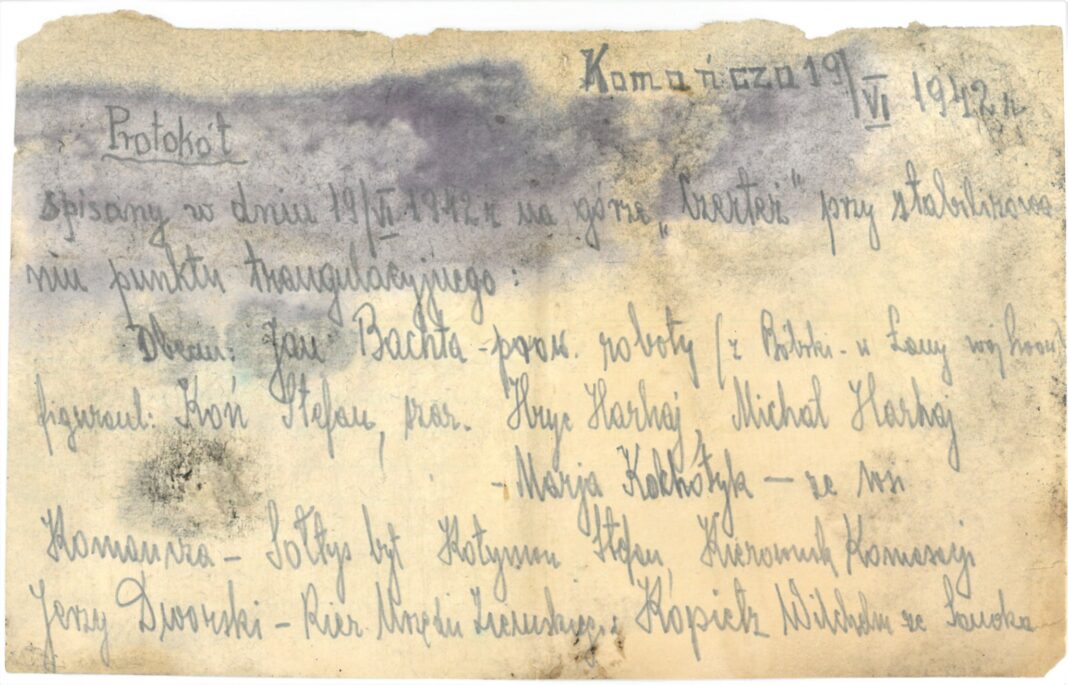 Komańcza 19/VI 1942 r
Protokół
spisany w dniu 19/VI 1942 r na górze „Czerteż" przy stabilizowa
niu punktu trangulacyjnego :
Obecni: Jan Bachta - prow. roboty (z Bóbrki - n Łany woj
figurant: Koń Stefan, szar. Hryc Harhaj, Michał Harhaj
- Marja Kochótyk — ze wsi
Komańcza - Sołtys był Stefan, Kierownik Komasacji
Jerzy Dworski - Kier Urzędu Ziemskiego: Kopietz Wilchelm ze Sanoka